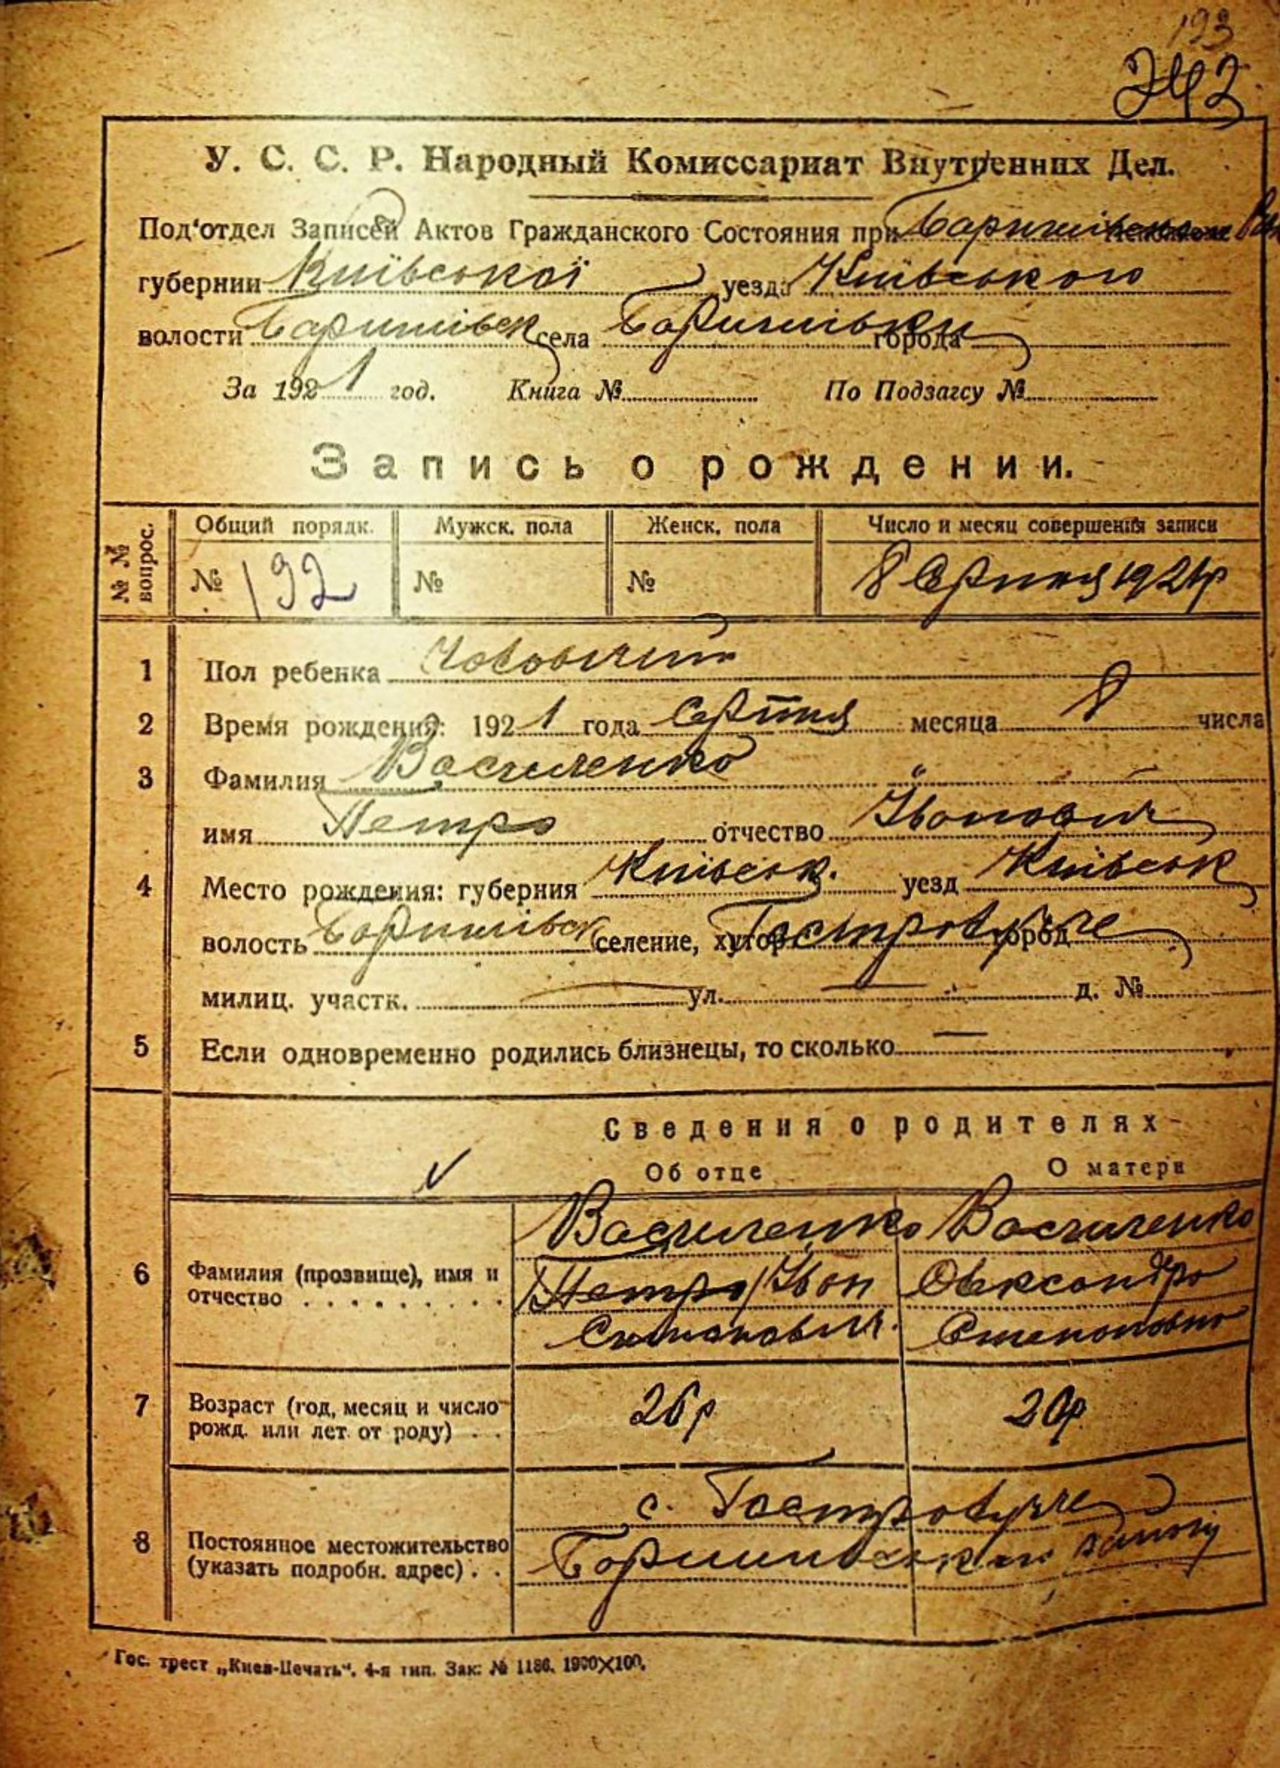 193
242
У. С. С. Р. Народный Комиссариат Внутренних Дел.
Под'отдел Записей Актов Гражданского Состояния при Баришівськом
губернии Київської уезда Київського
волости Баришівськ села Баришівки города
За 1921 год. Книга № По Подзагсу №
Запись о рождении.
№ № вопрос. Общий порядк. Мужск. пола Женск. пола Число и месяц совершения записи
№ 192 № № 8 Серпня 1921р
1 Пол ребенка Чоловічий
2 Время рождения: 1921 года Серпня месяца 8 числа
3 Фамилия Василенко
имя Петро отчество Іванович
4 Место рождения: губерния Київськ. уезд Київськ
волость Баришівск селение, хутор Гостролучче город
милиц. участк. — ул. — д. №
5 Если одновременно родились близнецы, то сколько —
Сведения о родителях
Об отце О матери
Василенко Василенко
6 Фамилия (прозвище), имя и Петро/Іван Олександра
отчество Степановна
7 Возраст (год, месяц и число 26р 20р
рожд. или лет от роду)
с. Гостролучче
8 Постоянное местожительство Баришівської волости
(указать подробн. адрес)
Гос. трест „Киев-Печать“. 4-я тип. Зак: № 1186. 1900×100.